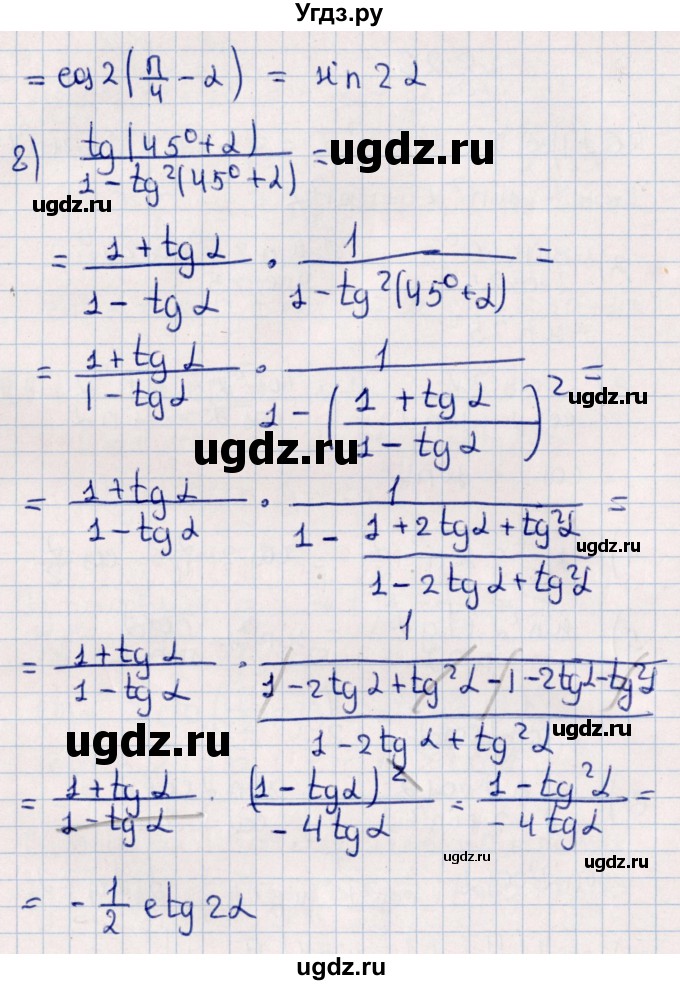 Угдз.ру
= cos 2(π/4 - α) = sin 2α
г) tg(45° + α) / (1 - tg²(45° + α)) =
ugdz.ru
ugdz.ru
= (1 + tg α)/(1 - tg α) · 1/(1 - tg²(45° + α)) =
= (1 + tg α)/(1 - tg α) · 1/(1 - ((1 + tg α)/(1 - tg α))²) =
ugdz.ru
ugdz.ru
= (1 + tg α)/(1 - tg α) · 1/(1 - (1 + 2 tg α + tg² α)/(1 - 2 tg α + tg² α)) =
ugdz.ru
= (1 + tg α)/(1 - tg α) · 1/((1 - 2 tg α + tg² α - 1 - 2 tg α - tg² α)/(1 - 2 tg α + tg² α))
ugdz.ru
ugdz.ru
= (1 + tg α)/(1 - tg α) · (1 - tg α)²/(- 4 tg α) = (1 - tg² α)/(- 4 tg α) =
ugdz.ru
ugdz.ru
= - 1/2 ctg 2α
ugdz.ru